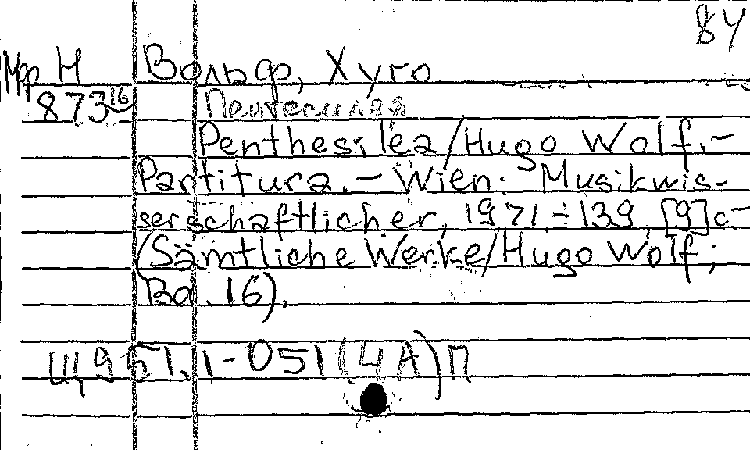 84
Мфр Н Вольф, Хуго
873 16 Пентесилея
Penthesilea/Hugo Wolf.-
Partitura.- Wien: Musikwis-
senschaftlicher, 1971.-139, [9]с-
(Sämtliche Werke/Hugo Wolf;
Bd. 16).
Щ951.1-051(4А)П